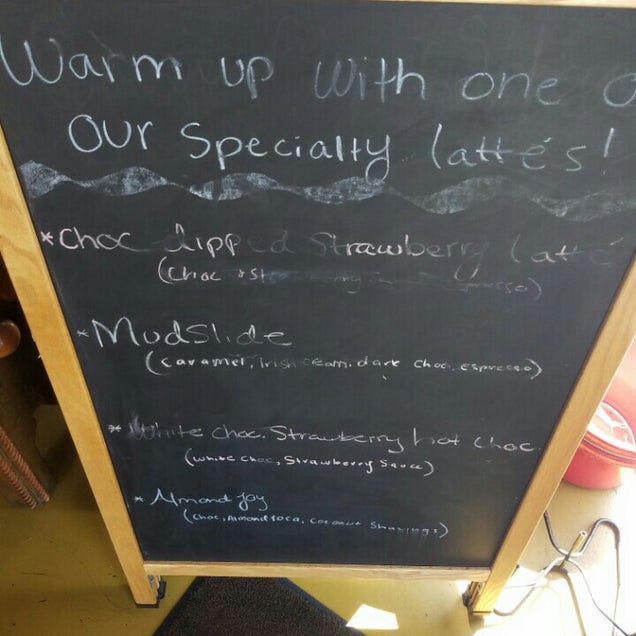 Warm up with one o
our Specialty latté's!
*Choc dipped Strawberry latté
(Choc & espresso)
*Mudslide
(caramel, Irish cream, dark choc, espresso)
*White choc. Strawberry hot choc.
(white choc, Strawberry Sauce)
*Almond Joy
(choc, Almond roca, coconut Shavings)